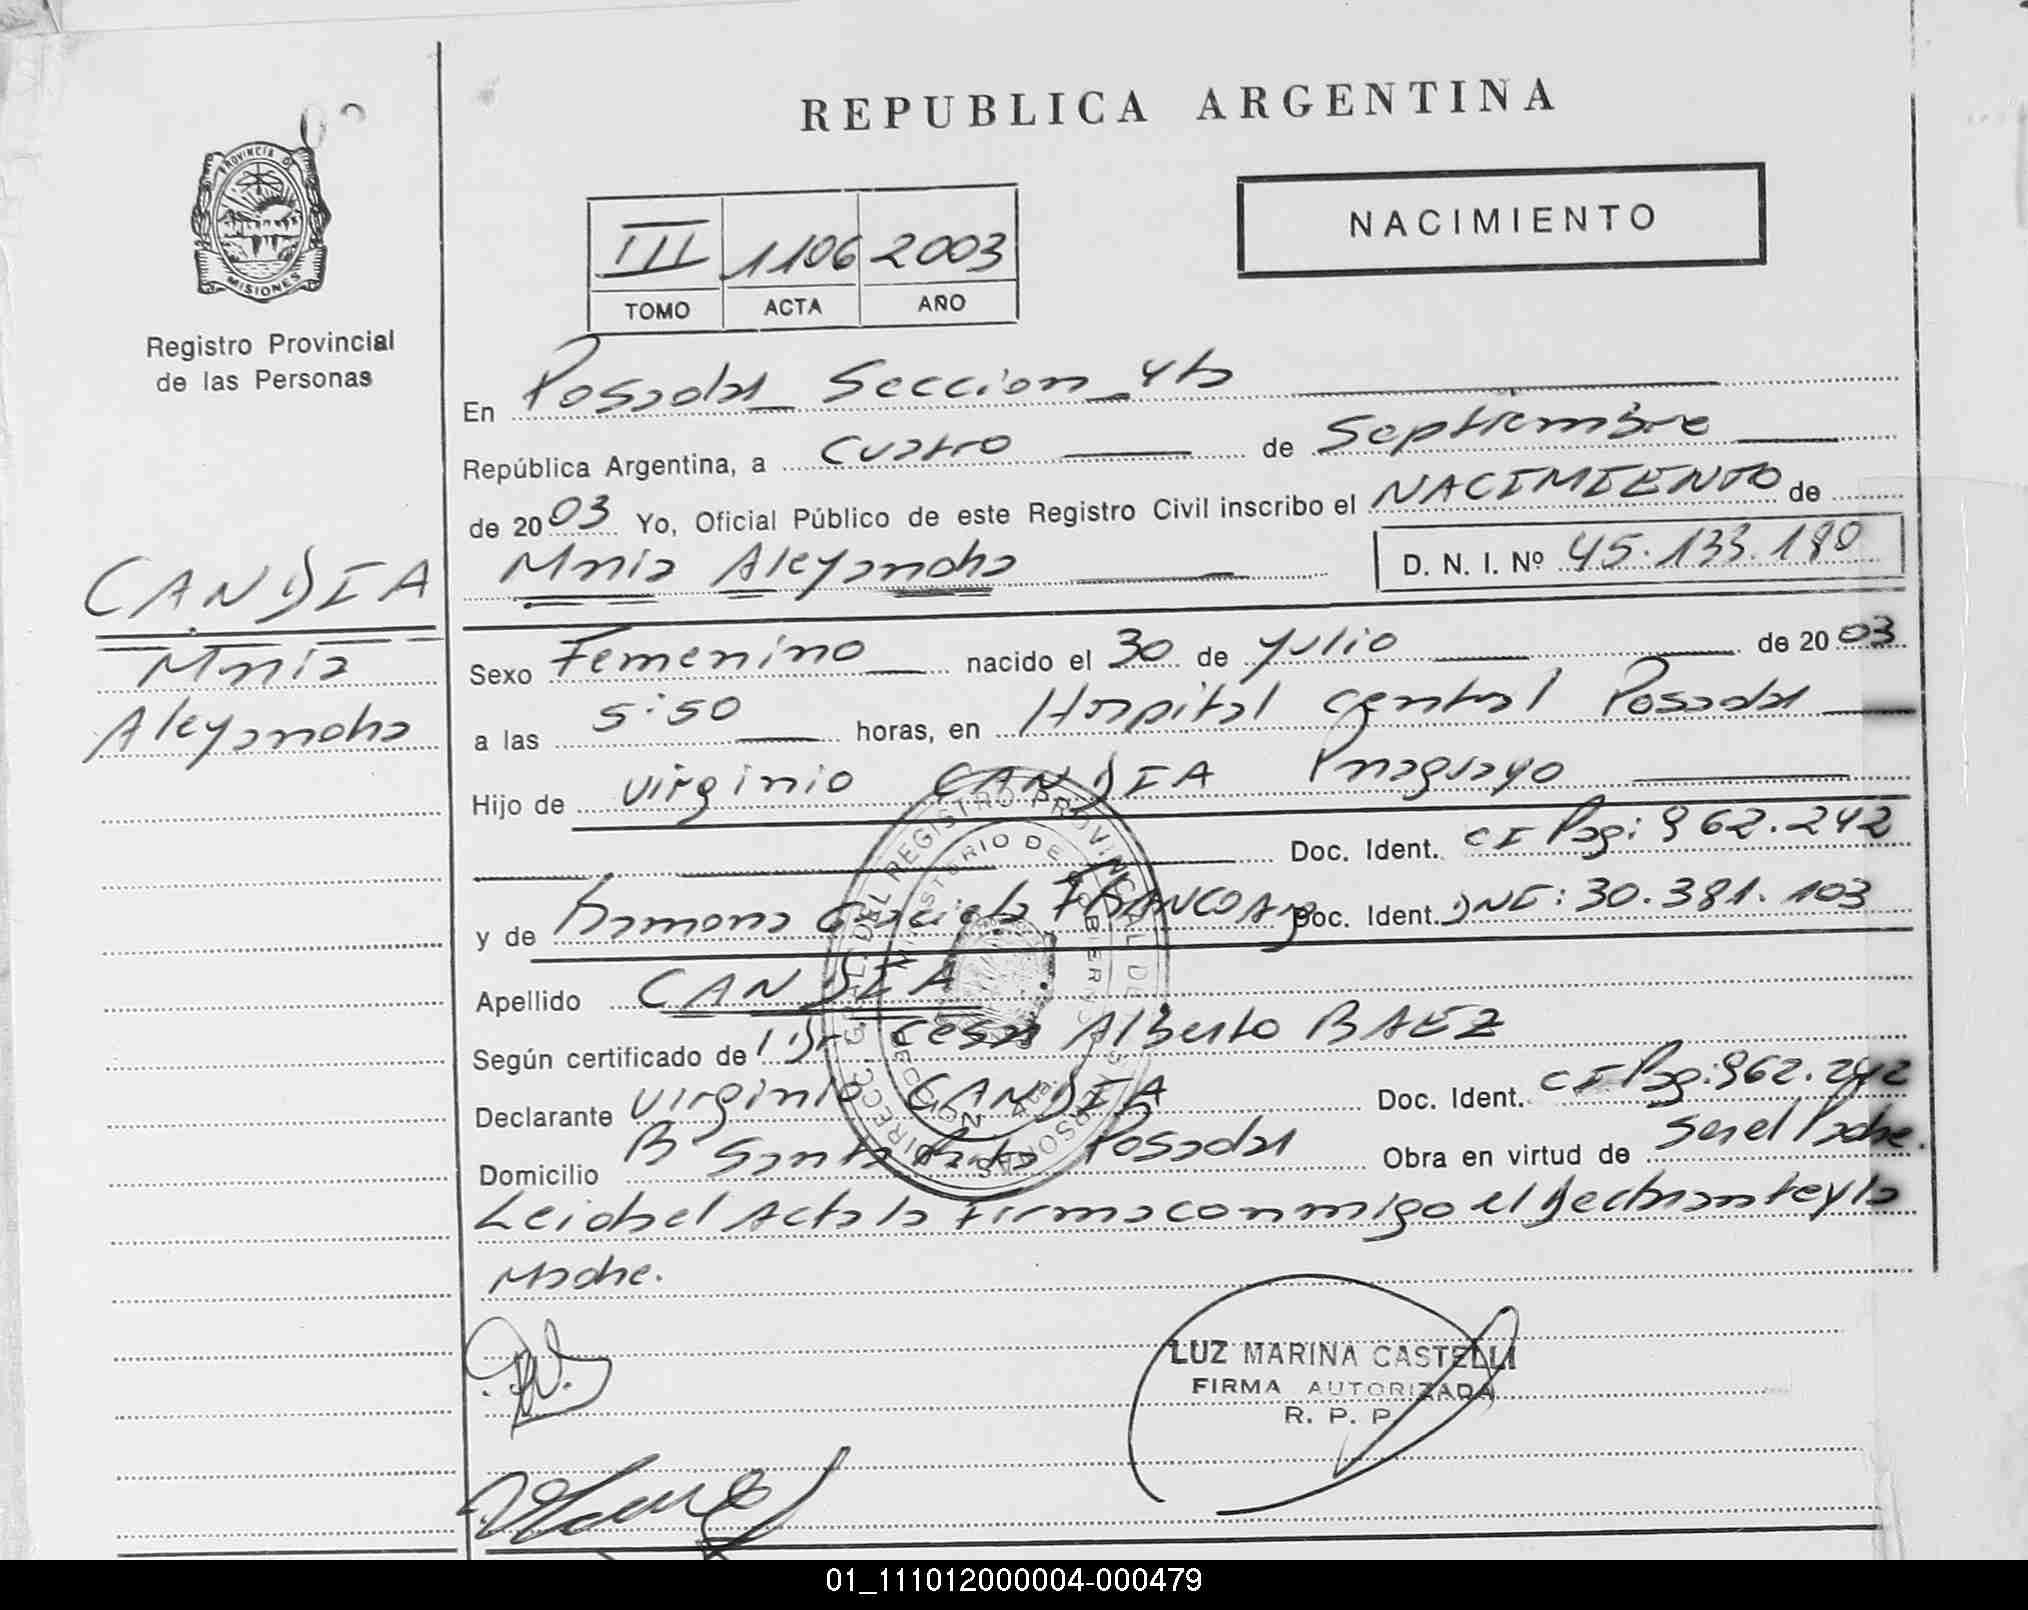 REPUBLICA ARGENTINA
PROVINCIA D
MISIONES
Registro Provincial
de las Personas
NACIMIENTO
III 1106 2003
TOMO ACTA AÑO
En Posadas Seccion 4ta
República Argentina, a cuatro de Septiembre
de 2003 Yo, Oficial Público de este Registro Civil inscribo el NACIMIENTO de
Maria Aleyandra D. N. I. Nº 45.133.180
CANDIA
Maria
Aleyandra
Sexo Femenino nacido el 30 de yulio de 2003
a las 5:50 horas, en Hospital central Posadas
Hijo de virginio CANDIA Paraguayo
Doc. Ident. CI Pag: 962.242
y de Ramona Graciela FRANCO Arg Doc. Ident. DNI: 30.381.103
Apellido CANDIA
Según certificado de Dr. Cesar Alberto BAEZ
Declarante virginio CANDIA Doc. Ident. CI Pag: 962.242
Domicilio Bº Santa Rita Posadas Obra en virtud de Ser el Padre.
Leida el Acta la Firma conmigo el Declarante y la
Madre.
LUZ MARINA CASTELLI
FIRMA AUTORIZADA
R. P. P.
01_111012000004-000479